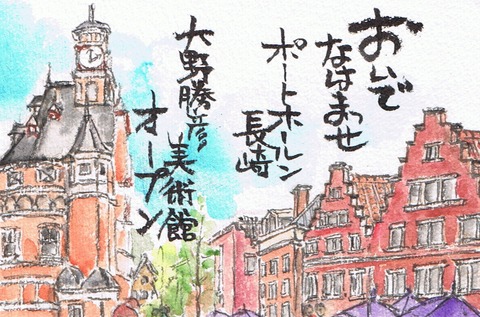 おいで
なはませ
ポートホールン
長崎
大野勝彦
美術館
オープン